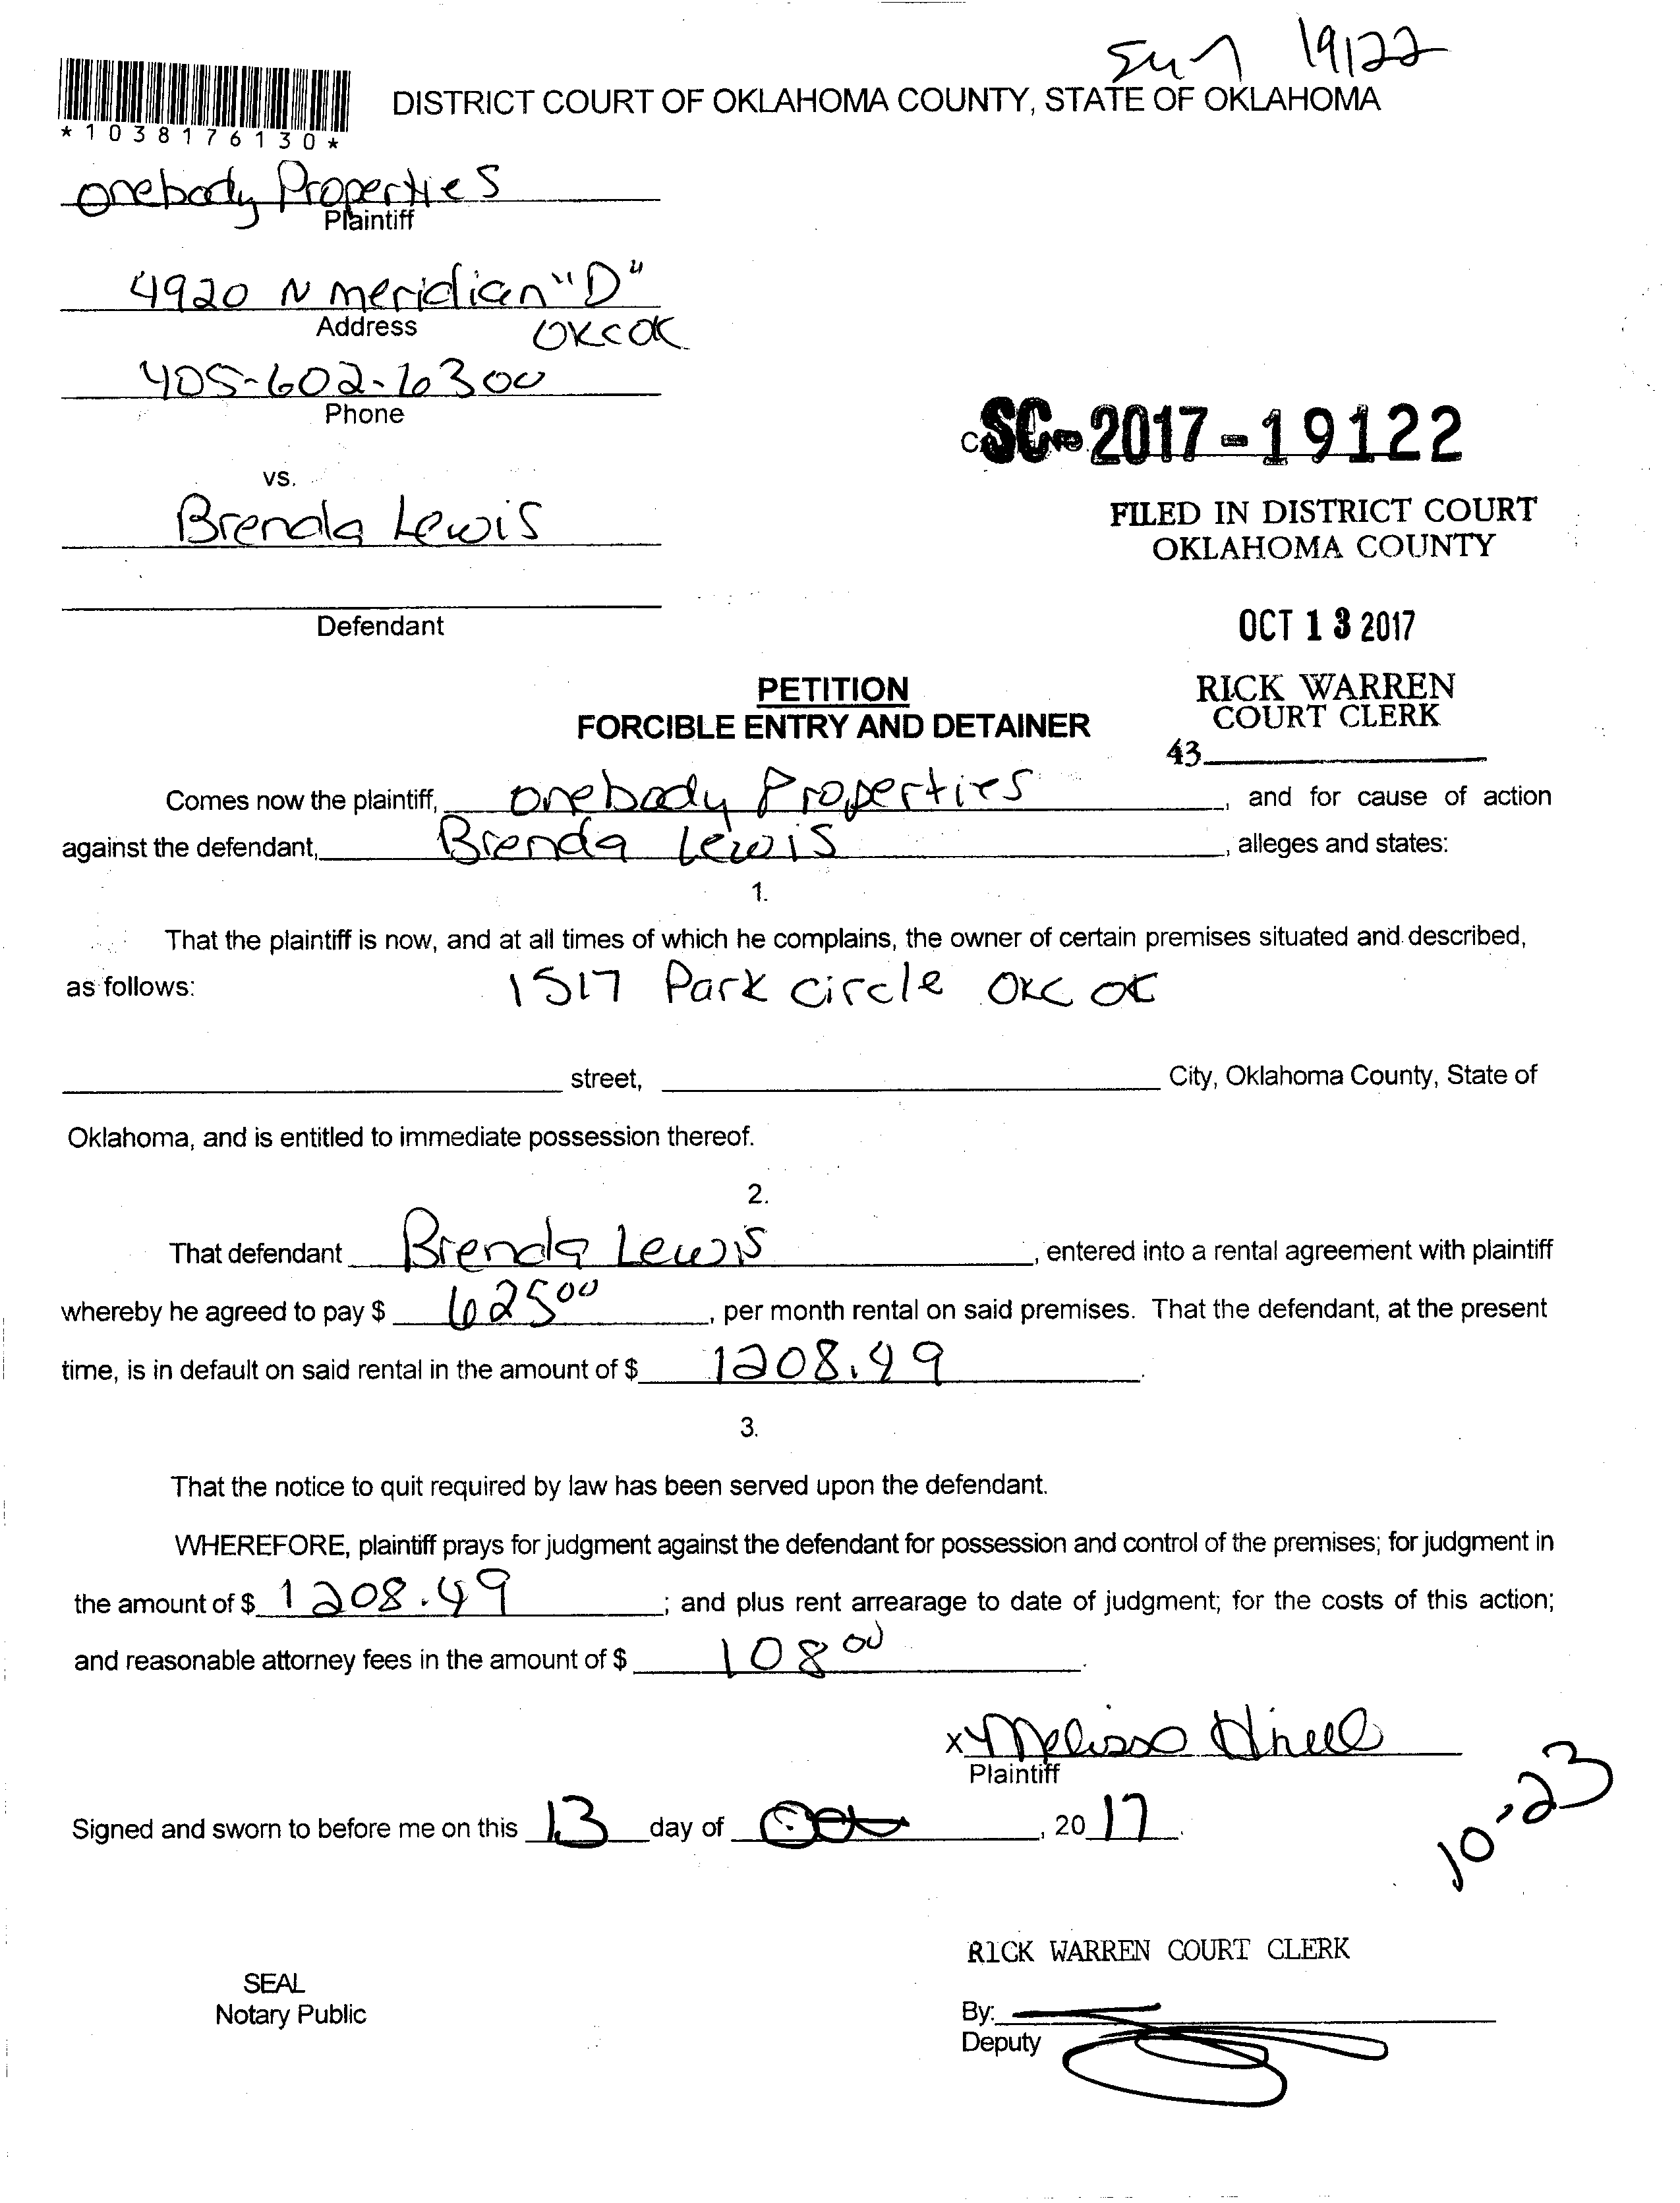 19122
DISTRICT COURT OF OKLAHOMA COUNTY, STATE OF OKLAHOMA
*1038176130*
onebody Properties
Plaintiff
4920 N meridian "D"
Address OKC OK
405-602-6300
Phone
SC-2017-19122
vs.
Brenda Lewis
FILED IN DISTRICT COURT
OKLAHOMA COUNTY
Defendant
OCT 13 2017
PETITION
FORCIBLE ENTRY AND DETAINER
RICK WARREN
COURT CLERK
43
Comes now the plaintiff, onebody Properties, and for cause of action
against the defendant, Brenda Lewis, alleges and states:
1.
That the plaintiff is now, and at all times of which he complains, the owner of certain premises situated and described,
as follows: 1517 Park circle OKC OK
street, City, Oklahoma County, State of
Oklahoma, and is entitled to immediate possession thereof.
2.
That defendant Brenda Lewis, entered into a rental agreement with plaintiff
whereby he agreed to pay $ 625 00, per month rental on said premises. That the defendant, at the present
time, is in default on said rental in the amount of $ 1208.49.
3.
That the notice to quit required by law has been served upon the defendant.
WHEREFORE, plaintiff prays for judgment against the defendant for possession and control of the premises; for judgment in
the amount of $ 1208.49; and plus rent arrearage to date of judgment; for the costs of this action;
and reasonable attorney fees in the amount of $ 108 00.
x Melissa
Plaintiff
Signed and sworn to before me on this 13 day of Oct, 2017.
10-23
RICK WARREN COURT CLERK
SEAL
Notary Public
By:
Deputy